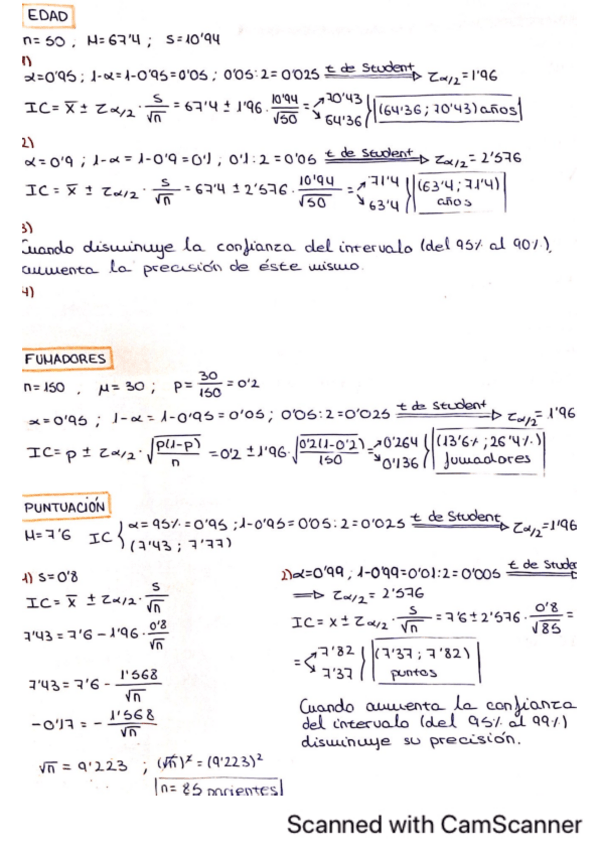 EDAD
n=50, M=67'4; S=10'94
1)
α=0'95; 1-α=1-0'95=0'05; 0'05:2=0'025 t de Student ⟹ Zα/2=1'96
IC = x̄ ± Zα/2 · S/√n = 67'4 ± 1'96 · 10'94/√50 = 70'43 64'36 (64'36; 70'43) años
2)
α=0'9; 1-α=1-0'9=0'1; 0'1:2=0'05 t de Student ⟹ Zα/2=2'576
IC = x̄ ± Zα/2 · S/√n = 67'4 ± 2'576 · 10'94/√50 = 71'4 63'4 (63'4; 71'4) años
3)
Cuando disminuye la confianza del intervalo (del 95% al 90%),
aumenta la precisión de éste mismo.
4)
FUMADORES
n=150, μ=30; p=30/150=0'2
α=0'95; 1-α=1-0'95=0'05; 0'05:2=0'025 t de Student ⟹ Zα/2=1'96
IC = p ± Zα/2 · √p(1-p)/n = 0'2 ± 1'96 · √0'2(1-0'2)/150 = 0'264 0'136 (13'6%; 26'4%) fumadores
PUNTUACIÓN
M=7'6 IC { α=95%=0'95; 1-0'95=0'05:2=0'025 t de Student ⟹ Zα/2=1'96
(7'43; 7'77)
1) S=0'8
IC = x̄ ± Zα/2 · S/√n
7'43=7'6-1'96 · 0'8/√n
7'43=7'6- 1'568/√n
-0'17=- 1'568/√n
√n=9'223; (√n)²=(9'223)²
n=85
2) α=0'99; 1-0'99=0'01:2=0'005 t de Student
⟹ Zα/2=2'576
IC = x ± Zα/2 · S/√n = 7'6 ± 2'576 · 0'8/√85 =
= 7'82 7'37 (7'37; 7'82) puntos
Cuando aumenta la confianza
del intervalo (del 95% al 99%)
disminuye su precisión.
Scanned with CamScanner